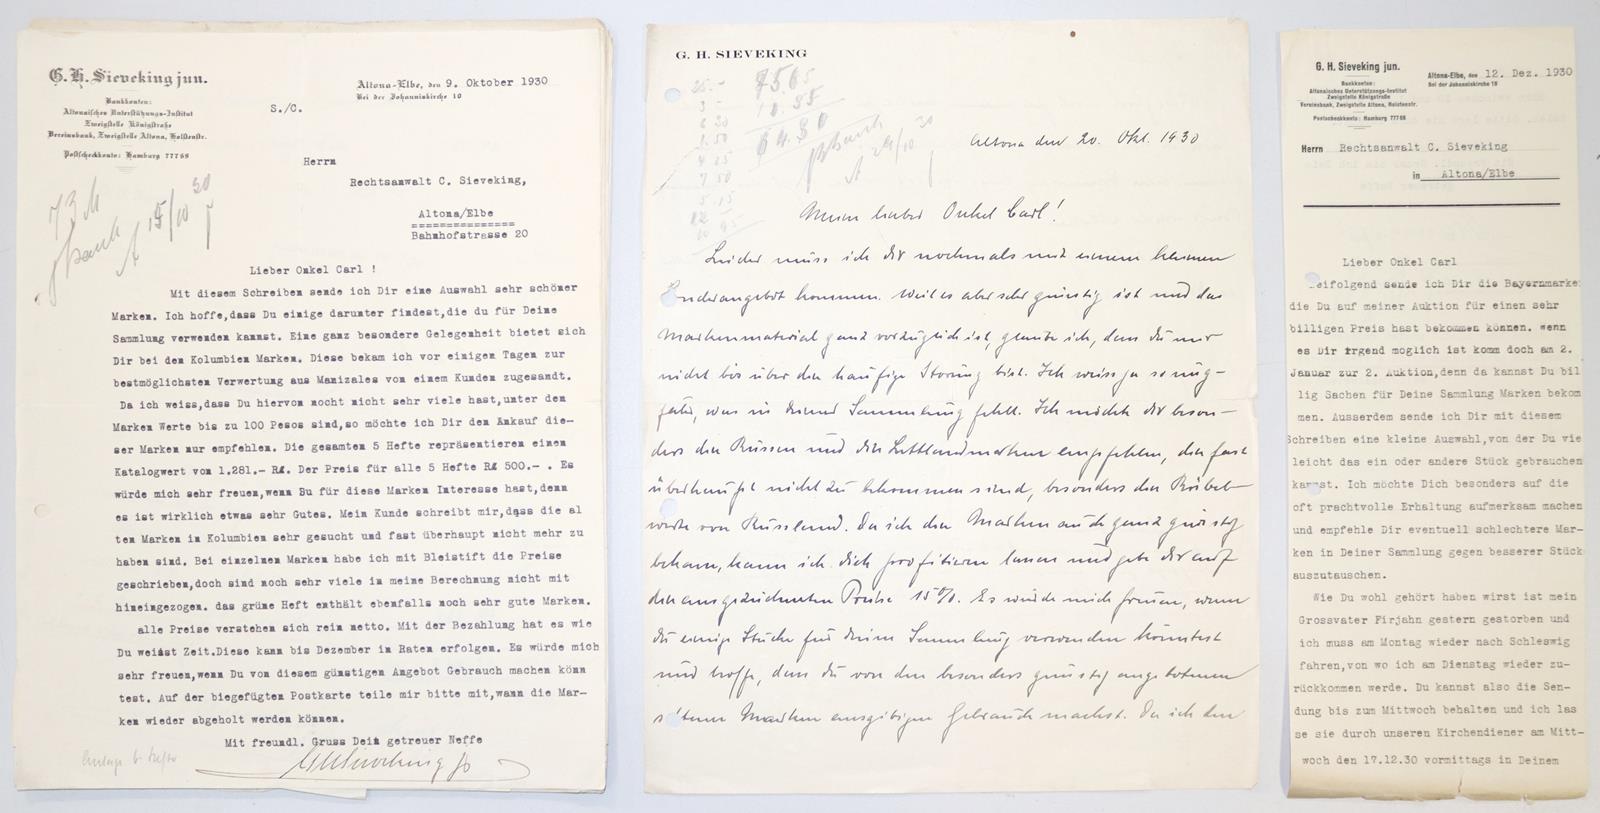 G. H. Sieveking jun.
Bankkonten:
Altonaisches Unterstützungs-Institut
Zweigstelle Königstraße
Vereinsbank, Zweigstelle Altona, Holstenstr.
Postscheckkonto: Hamburg 77768
Altona-Elbe, den 9. Oktober 1930
Bei der Johanniskirche 10
S./C.
Herrn
Rechtsanwalt C. Sieveking,
Altona/Elbe
Bahnhofstrasse 20
15/10 30
Lieber Onkel Carl !
Mit diesem Schreiben sende ich Dir eine Auswahl sehr schöner
Marken. Ich hoffe,dass Du einige darunter findest,die du für Deine
Sammlung verwenden kannst. Eine ganz besondere Gelegenheit bietet sich
Dir bei den Kolumbien Marken. Diese bekam ich vor einigen Tagen zur
bestmöglichsten Verwertung aus Manizales von einem Kunden zugesandt.
Da ich weiss,dass Du hiervon nocht nicht sehr viele hast,unter dem
Marken Werte bis zu 100 Pesos sind,so möchte ich Dir den Ankauf die-
ser Marken nur empfehlen. Die gesamten 5 Hefte repräsentieren einen
Katalogwert von 1.281.- RM. Der Preis für alle 5 Hefte RM 500.- . Es
würde mich sehr freuen,wenn Bu für diese Marken Interesse hast,denn
es ist wirklich etwas sehr Gutes. Mein Kunde schreibt mir,dass die al
ten Marken in Kolumbien sehr gesucht und fast überhaupt nicht mehr zu
haben sind. Bei einzelnen Marken habe ich mit Bleistift die Preise
geschrieben,doch sind noch sehr viele in meine Berechnung nicht mit
hineingezogen. das grüne Heft enthält ebenfalls noch sehr gute Marken.
alle Preise verstehen sich rein netto. Mit der Bezahlung hat es wie
Du weisst Zeit.Diese kann bis Dezember in Raten erfolgen. Es würde mich
sehr freuen,wenn Du von diesem günstigen Angebot Gebrauch machen könn
test. Auf der biegefügten Postkarte teile mir bitte mit,wann die Mar-
ken wieder abgeholt werden können.
Mit freundl. Gruss Dein getreuer Neffe
GHSieveking jr
G. H. SIEVEKING
Altona den 20. Okt. 1930
Mein lieber Onkel Carl!
Leider muss ich dir nochmals mit einem kleinen
Sonderangebot kommen. Weil es aber sehr günstig ist und das
Markenmaterial ganz vorzüglich ist, glaube ich, dass du mir
nicht bös über die häufige Störung bist. Ich weiss ja so unge-
fähr, was in deiner Sammlung fehlt. Ich möchte dir beson-
ders die Russen und die Lettlandmarken empfehlen, die fast
überhaupt nicht zu bekommen sind, besonders die Rubel-
werte von Russland. Da ich die Marken auch ganz günstig
bekam, kann ich dich profitieren lassen und gebe dir auf
die ausgezeichneten Preise 15%. Es würde mich freuen, wenn
du einige Stücke für deine Sammlung verwenden könntest
und hoffe, dass du von den besonders günstig angebotenen
Marken ausgibigen Gebrauch machst. Da ich den
G. H. Sieveking jun.
Bankkonten:
Altonaisches Unterstützungs-Institut
Zweigstelle Königstraße
Vereinsbank, Zweigstelle Altona, Holstenstr.
Postscheckkonto: Hamburg 77768
Altona-Elbe, den 12. Dez. 1930
Bei der Johanniskirche 10
Herrn Rechtsanwalt C. Sieveking
in Altona/Elbe
Lieber Onkel Carl
eifolgend sende ich Dir die Bayernmarke
die Du auf meiner Auktion für einen sehr
billigen Preis hast bekommen können. wenn
es Dir irgend moglich ist komm doch am 2.
Januar zur 2. Auktion,denn da kannst Du bil
lig Sachen für Deine Sammlung Marken bekom
men. Ausserdem sende ich Dir mit diesem
Schreiben eine kleine Auswahl,von der Du vie
leicht das ein oder andere Stück gebrauchen
kannst. Ich möchte Dich besonders auf die
oft prachtvolle Erhaltung aufmerksam machen
und empfehle Dir eventuell schlechtere Mar-
ken in Deiner Sammlung gegen besserer Stück
auszutauschen.
Wie Du wohl gehört haben wirst ist mein
Grossvater Firjahn gestern gestorben und
ich muss am Montag wieder nach Schleswig
fahren,von wo ich am Dienstag wieder zu-
rückkommen werde. Du kannst also die Sen-
dung bis zum Mittwoch behalten und ich las
se sie durch unseren Kirchendiener am Mitt-
woch den 17.12.30 vormittags in Deinem